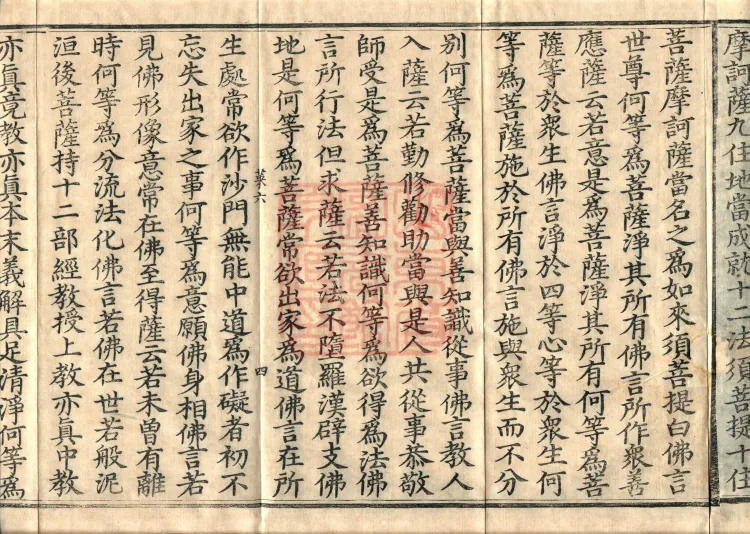 摩訶薩九住地當成就十二法須菩提十住
菩薩摩訶薩當名之爲如來須菩提白佛言
世尊何等爲菩薩淨其所有佛言所作衆善
應薩云若意是爲菩薩淨其所有何等爲菩
薩等於衆生佛言淨於四等心等於衆生何
等爲菩薩施於所有佛言施與衆生而不分
別何等爲菩薩當與善知識從事佛言教人
入薩云若勤修勸助當與是人共從事恭敬
師受是爲菩薩善知識何等爲欲得爲法佛
言所行法但求薩云若法不墮羅漢辟支佛
地是何等爲菩薩常欲出家爲道佛言在所
菜六 四
生處常欲作沙門無能中道爲作礙者初不
忘失出家之事何等爲意願佛身相佛言若
見佛形像意常在佛至得薩云若未曾有離
時何等爲分流法化佛言若佛在世若般泥
洹後菩薩持十二部經教授上教亦眞中教
亦眞竟教亦眞本末義解具足清淨何等爲